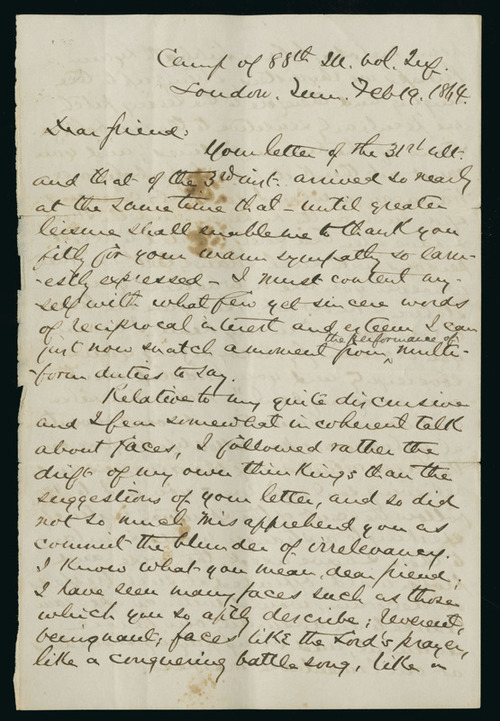 Camp of 88th Ill. Vol. Inf.
London. Tenn. Feb 19. 1864.
Dear friend:
Your letter of the 31st ult.
and that of the 3d inst. arrived so nearly
at the same time that – until greater
leisure shall enable me to thank you
fitly for your warm sympathy so earn-
-estly expressed – I must content my-
self with what few yet sincere words
of reciprocal interest and esteem I can
just now snatch a moment from the performance of multi-
-form duties to say.
Relative to my quite discursive
and I fear somewhat incoherent talk
about faces, I followed rather the
drift of my own thinkings than the
suggestions of your letter, and so did
not so much misapprehend you as
commit the blunder of irrelevancy.
I know what you mean, dear friend;
I have seen many faces such as those
which you so aptly describe; reverent,
benignant; faces like the Lord's prayer,
like a conquering battle song, like a